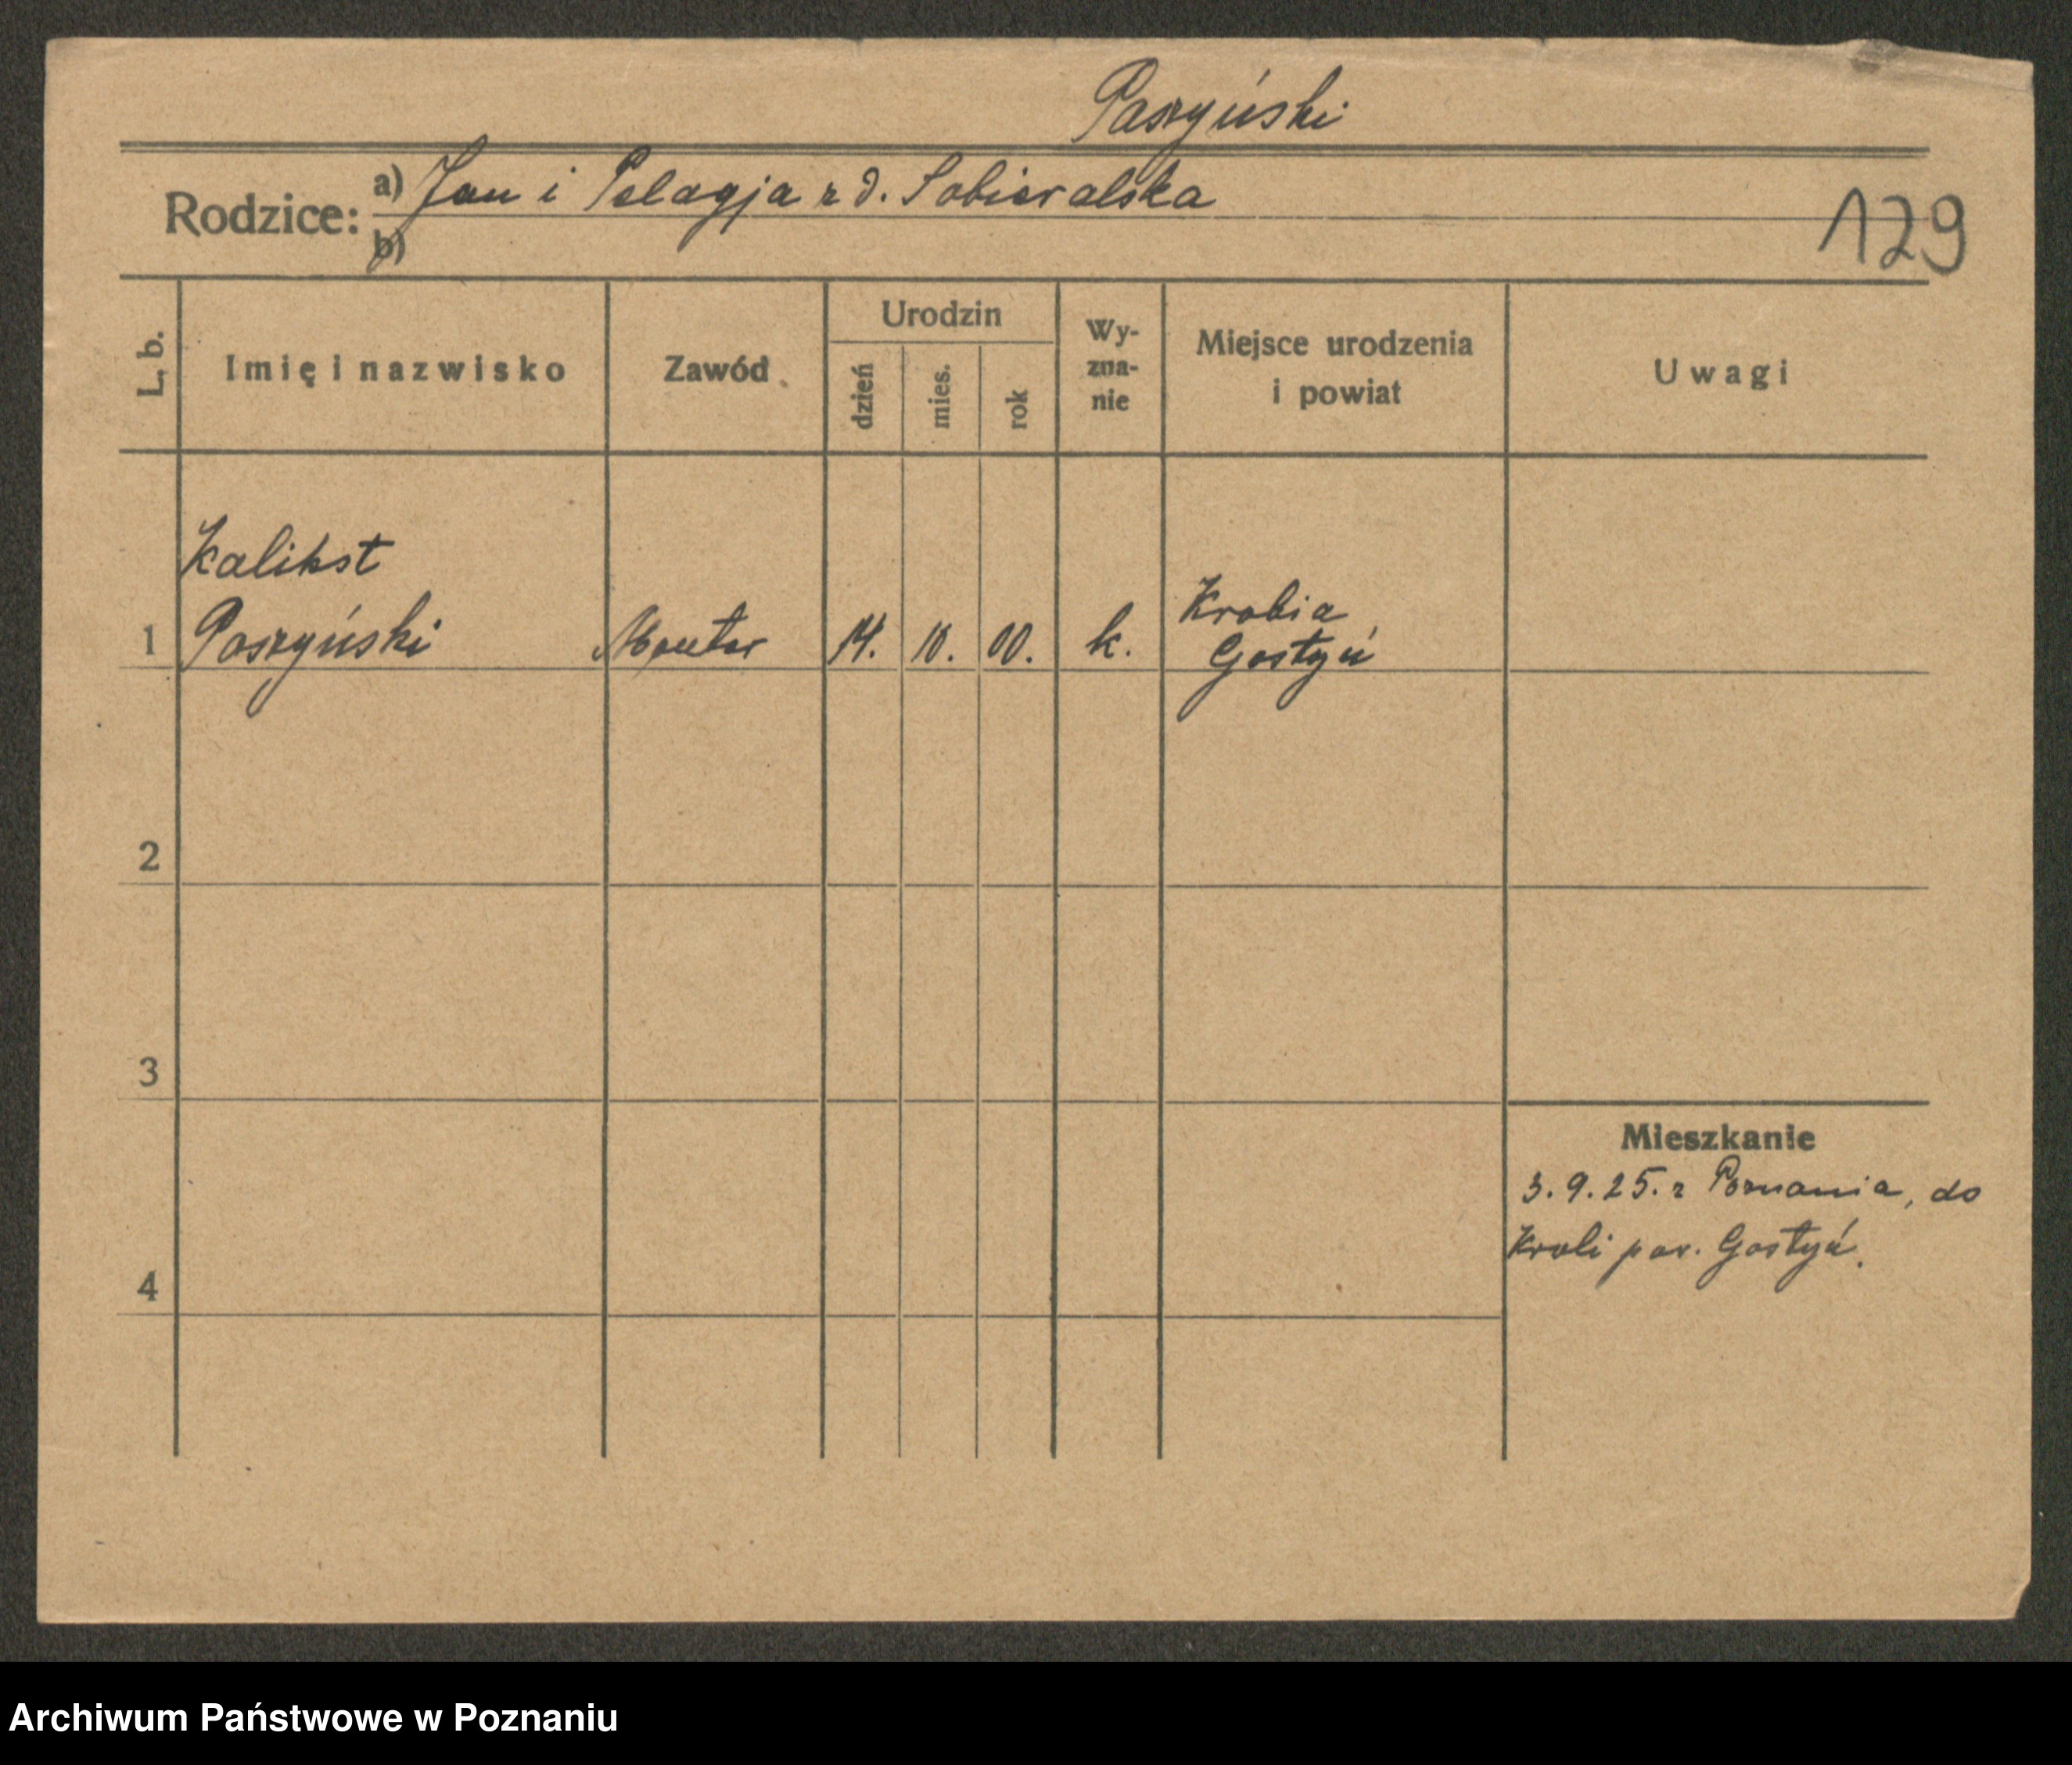 Paszyński
Rodzice: a) Jan i Pelagja z d. Sobieralska
b)
129
L. b.
Imię i nazwisko
Zawód
Urodzin
dzień
mies.
rok
Wy-
zna-
nie
Miejsce urodzenia
i powiat
Uwagi
Kalikst
1 Paszyński Monter 14. 10. 00. k. Krobia
Gostyń
2
3
Mieszkanie
3.9.25. z Poznania, do
pow. Gostyń.
4
Archiwum Państwowe w Poznaniu